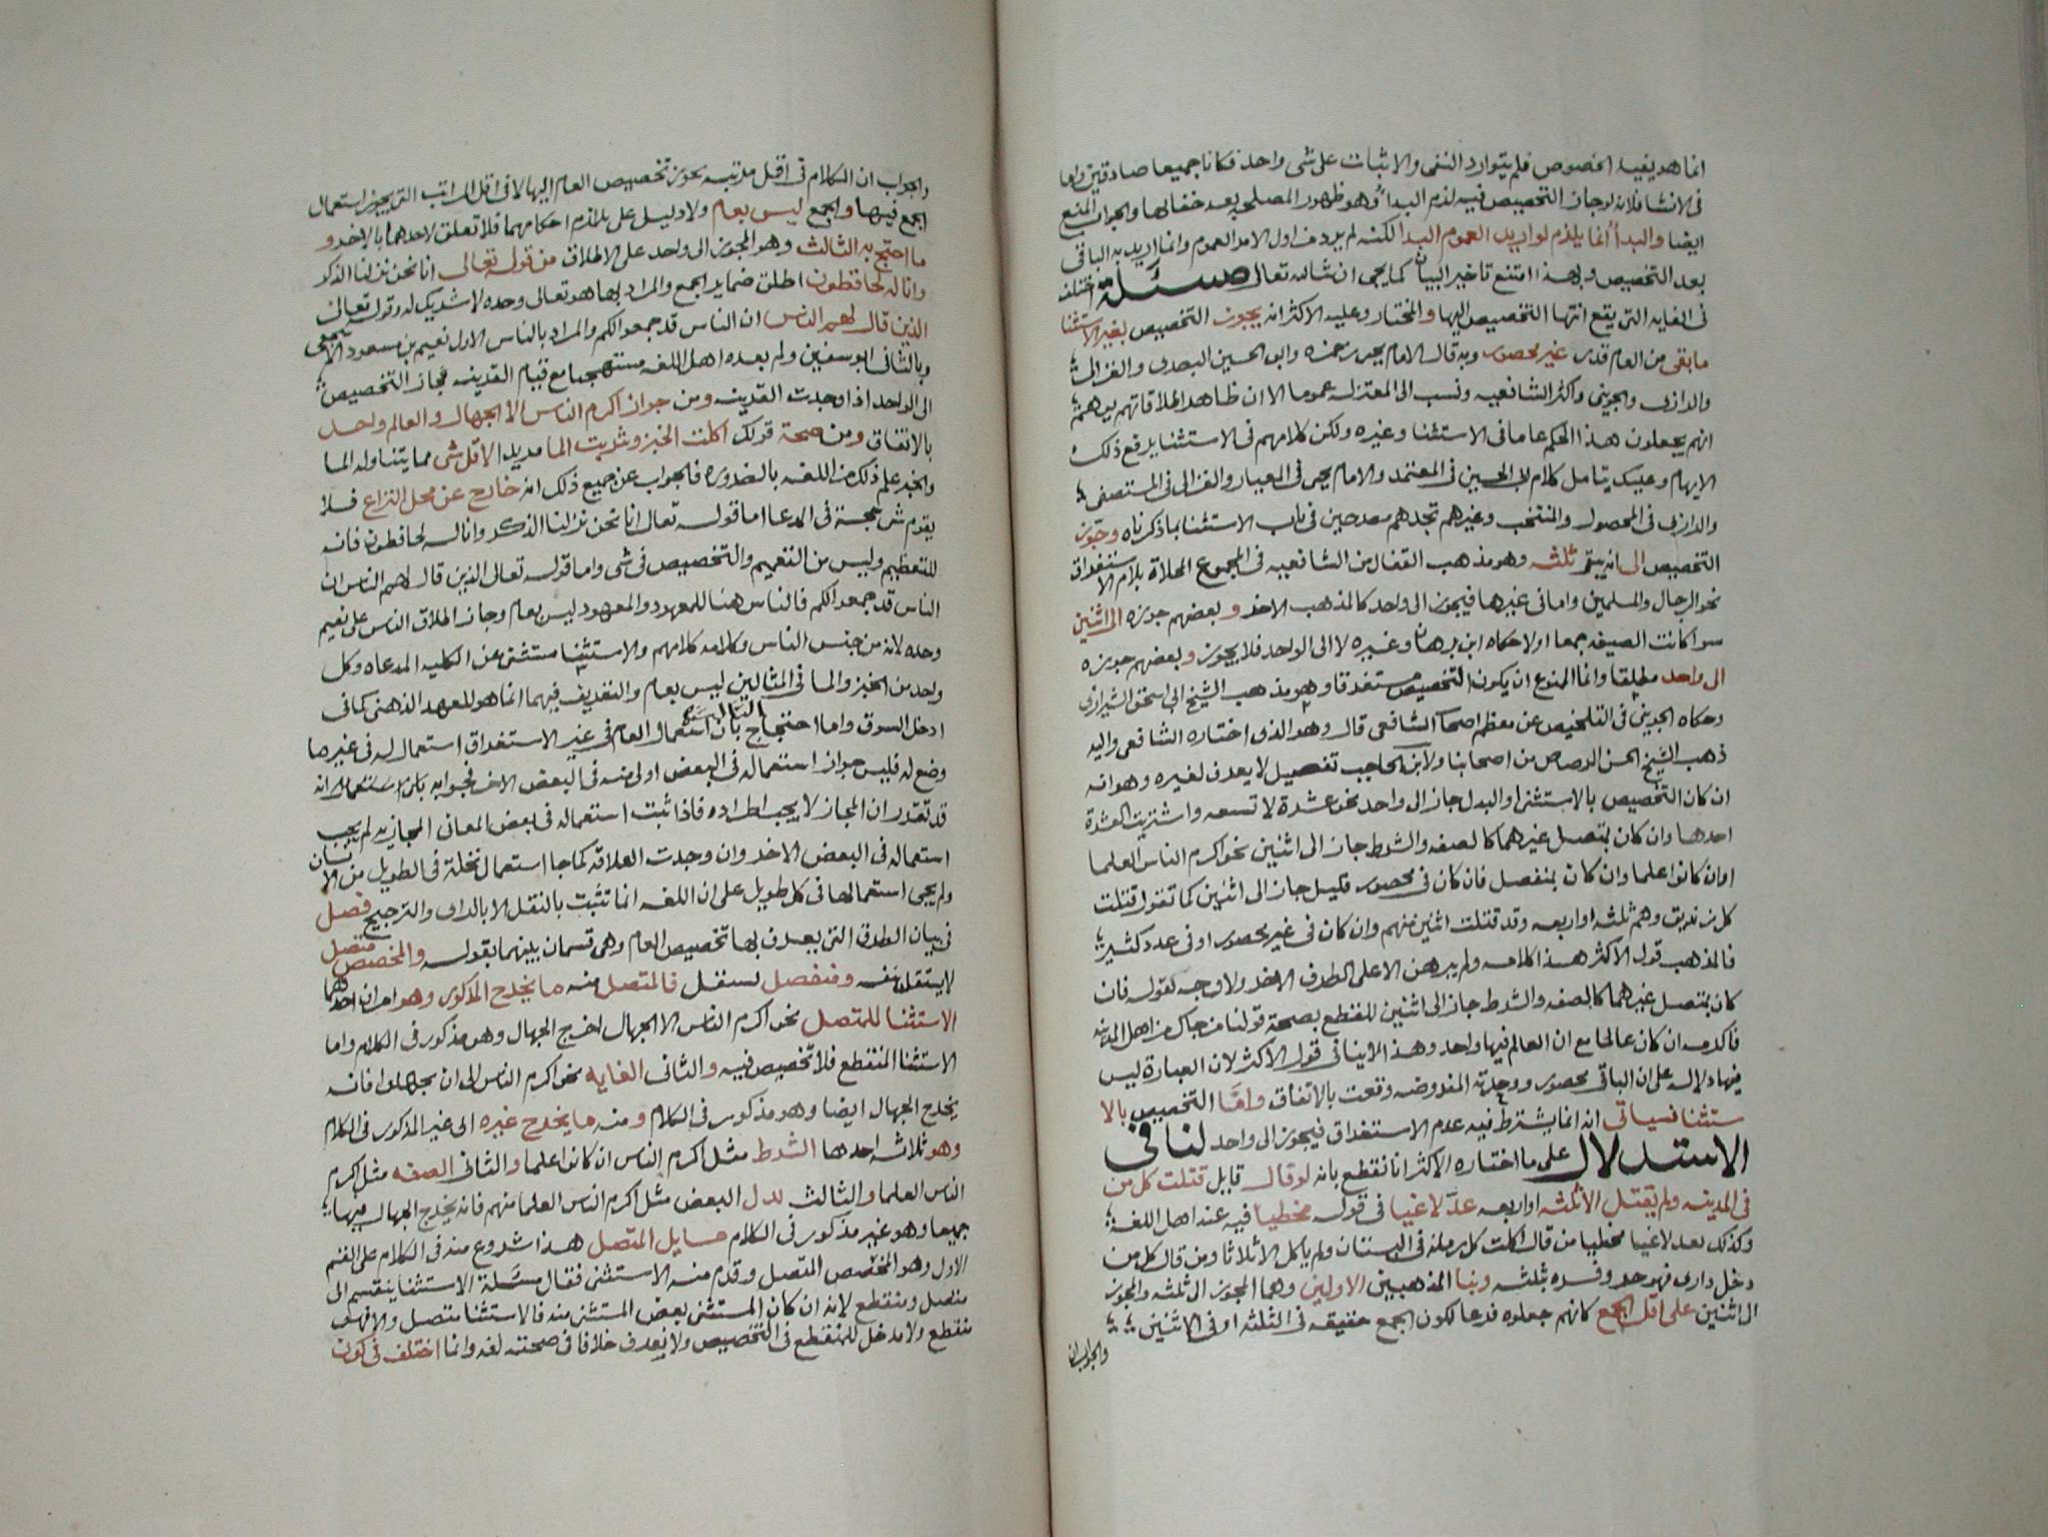 انما هو يفيد الخصوص فلم يتوارد النفى والاثبات على شى واحد فكانا جميعا صادقين واما
فى الانشا فلانه لو جاز التخصيص فيه لزم البدا وهو ظهور المصلحه بعد خفائها والجواب المنع
ايضا والبدا انما يلزم لو اريد العموم البدا لكنه لم يرد فى اول الامر العموم وانما اريد به الباقى
بعد التخصيص ولهذا امتنع تاخير البيان كما يجى ان شا الله تعالى مسئلة اختلف
فى الغايه التى يقع انتها التخصيص اليها والمختار وعليه الاكثر انه يجوز التخصيص بغير الاستثنا
ما بقى من العام قدر غير محصور وبه قال الامام يحيى بن حمزه وابو الحسين البصرى والغزالى
والرازى والجوينى واكثر الشافعيه ونسب الى المعتزله عموما الا ان ظاهر اطلاقاتهم يوهم
انهم يجعلون هذا الحكم عاما فى الاستثنا وغيره ولكن كلامهم فى الاستثنا يرفع ذلك
الايهام وعليك بتامل كلام ابى الحسين فى المعتمد والامام يحيى فى المعيار والغزالى فى المستصفى
والرازى فى المحصول والمنتخب وغيرهم تجدهم مصرحين فى باب الاستثنا بما ذكرناه وجوز
التخصيص الى انه يبقى ثلثه وهو مذهب القفال من الشافعيه فى الجموع المحلاة بلام الاستغراق
نحو الرجال والمسلمين واما فى غيرها فيجوز الى واحد كالمذهب الاخر وبعضهم جوزه الى اثنين
سوا كانت الصيغه جمعا اولا حكاه ابن برهان وغيره لا الى الواحد فلا يجوز وبعضهم جوزه
الى واحد مطلقا وانما الممنوع ان يكون التخصيص مستغرقا وهو مذهب الشيخ ابى اسحق الشيرازى
وحكاه الجوينى فى التلخيص عن معظم اصحاب الشافعى قال وهو الذى اختاره الشافعى واليه
ذهب الشيخ الحسن الرصاص من اصحابنا ولابن الحاجب تفصيل لا يعرف لغيره وهو انه
ان كان التخصيص بالاستثنا او البدل جاز الى واحد نحو عشرة لا تسعه واشتريت العشرة
احدها وان كان بمتصل غيرهما كالصفه والشرط جاز الى اثنين نحو اكرم الناس العلما
او ان كانوا علما وان كان بمنفصل فان كان فى محصور قليل جاز الى اثنين كما تقول قتلت
كل زنديق وهم ثلثه او اربعه وقد قتلت اثنين منهم وان كان فى غير محصور او فى عدد كثير
فالمذهب قول الاكثر هذا كلامه ولم يبرهن الا على الطرف الاخر ولا وجه لقوله فان
كان بمتصل غيرهما كالصفه والشرط جاز الى اثنين للقطع بصحة قولنا من جاك من اهل المدينه
فاكرمه ان كان عالما مع ان العالم فيها واحد وهذا لا ينافى قول الاكثر لان العبارة ليس
فيها دلاله على ان الباقى محصور ووحدته المفروضه وقعت بالاتفاق واما التخصيص بالا
ستثنا فسياتى انه انما يشترط فيه عدم الاستغراق فيجوز الى واحد لنا فى
الاستدلال على ما اختاره الاكثر انا نقطع بانه لو قال قايل قتلت كل من
فى المدينه ولم يقتل الا ثلثه او اربعه عد لاغيا فى قوله مخطيا فيه عند اهل اللغه
وكذلك يعد لاغيا مخطيا من قال اكلت كل رمانه فى البستان ولم ياكل الا ثلاثا ومن قال كل من
دخل دارى فهو حر وفسره بثلثه وبنا المذهبين الاولين وهما المجوز الى ثلثه والمجوز
الى اثنين على اقل الجمع كانهم جعلوه فرعا لكون الجمع حقيقه فى الثلثه او فى الاثنين
والجواب ان
والجواب ان الكلام فى اقل مرتبه يجوز تخصيص العام اليها لا فى اقل المراتب التى يجوز استعمال
الجمع فيها والجمع ليس بعام ولا دليل على تلازم احكامهما فلا تعلق لاحدهما بالاخر و
ما احتج به الثالث وهو المجوز الى واحد على الاطلاق من قوله تعالى انا نحن نزلنا الذكر
وانا له لحافظون اطلق ضماير الجمع والمراد بها هو تعالى وحده لا شريك له وقوله تعالى
الذين قال لهم الناس ان الناس قد جمعوا لكم والمراد بالناس الاول نعيم بن مسعود الاشجعى
وبالثانى ابو سفين ولم يعده اهل اللغه مستهجنا مع قيام القرينه فجاز التخصيص
الى الواحد اذا وجدت القرينه ومن جواز اكرم الناس الا الجهال والعالم واحد
بالاتفاق ومن صحة قولك اكلت الخبز وشربت الما مريدا لاقل شى مما يتناوله الما
والخبز علم ذلك من اللغه بالضروره فالجواب عن جميع ذلك انه خارج عن محل النزاع فلا
يقوم حجة فى المدعا اما قوله تعالى انا نحن نزلنا الذكر وانا له لحافظون فانه
للتعظيم وليس من التعميم والتخصيص فى شى واما قوله تعالى الذين قال لهم الناس ان
الناس قد جمعوا لكم فالناس هنا للمعهود والمعهود ليس بعام وجاز اطلاق الناس على نعيم
وحده لانه من جنس الناس وكلامه كلامهم والاستثنا مستثنى عن الكليه المدعاه وكل
واحد من الخبز والما فى المثالين ليس بعام والتعريف فيهما انما هو للعهد الذهنى كما فى
ادخل السوق واما احتجاج بان استعمال العام فى غير الاستغراق استعمال له فى غير ما
وضع له فليس جواز استعماله فى البعض اولى منه فى البعض الاخر فجوابه انه
قد تقرر ان المجاز لا يجب اطراده فاذا ثبت استعماله فى بعض المعانى المجازيه لم يجب
استعماله فى البعض الاخر وان وجدت العلاقه كما جا استعمال نخلة فى الطويل من الانسان
ولم يجى استعمالها فى كل طويل على ان اللغه انما تثبت بالنقل لا بالراى والترجيح فصل
فى بيان الطرق التى يعرف بها تخصيص العام وهى قسمان بينهما بقوله والمخصص متصل
لا يستقل بنفسه ومنفصل يستقل فالمتصل منه ما يخرج المذكور وهو امران احدهما
الاستثنا المتصل نحو اكرم الناس الا الجهال اخرج الجهال وهو مذكور فى الكلام واما
الاستثنا المنقطع فلا تخصيص فيه والثانى الغايه نحو اكرم الناس الى ان يجهلوا فانه
يخرج الجهال ايضا وهو مذكور فى الكلام ومنه ما يخرج غيره الى غير المذكور فى الكلام
وهو ثلاثه احدها الشرط مثل اكرم الناس ان كانوا علما والثانى الصفه مثل اكرم
الناس العلما والثالث بدل البعض مثل اكرم الناس العلما منهم فانه يخرج الجهال فيها
جميعا وهو غير مذكور فى الكلام مسايل المتصل هذا شروع منه فى الكلام على القسم
الاول وهو المخصص المتصل وقدم منه الاستثنى فقال مسئلة الاستثنا ينقسم الى
متصل ومنقطع لانه ان كان المستثنى بعض المستثنى منه فالاستثنا متصل والا فهو
منقطع ولا مدخل للمنقطع فى التخصيص ولا يعرف خلافا فى صحته لغه وانما اختلف فى كون